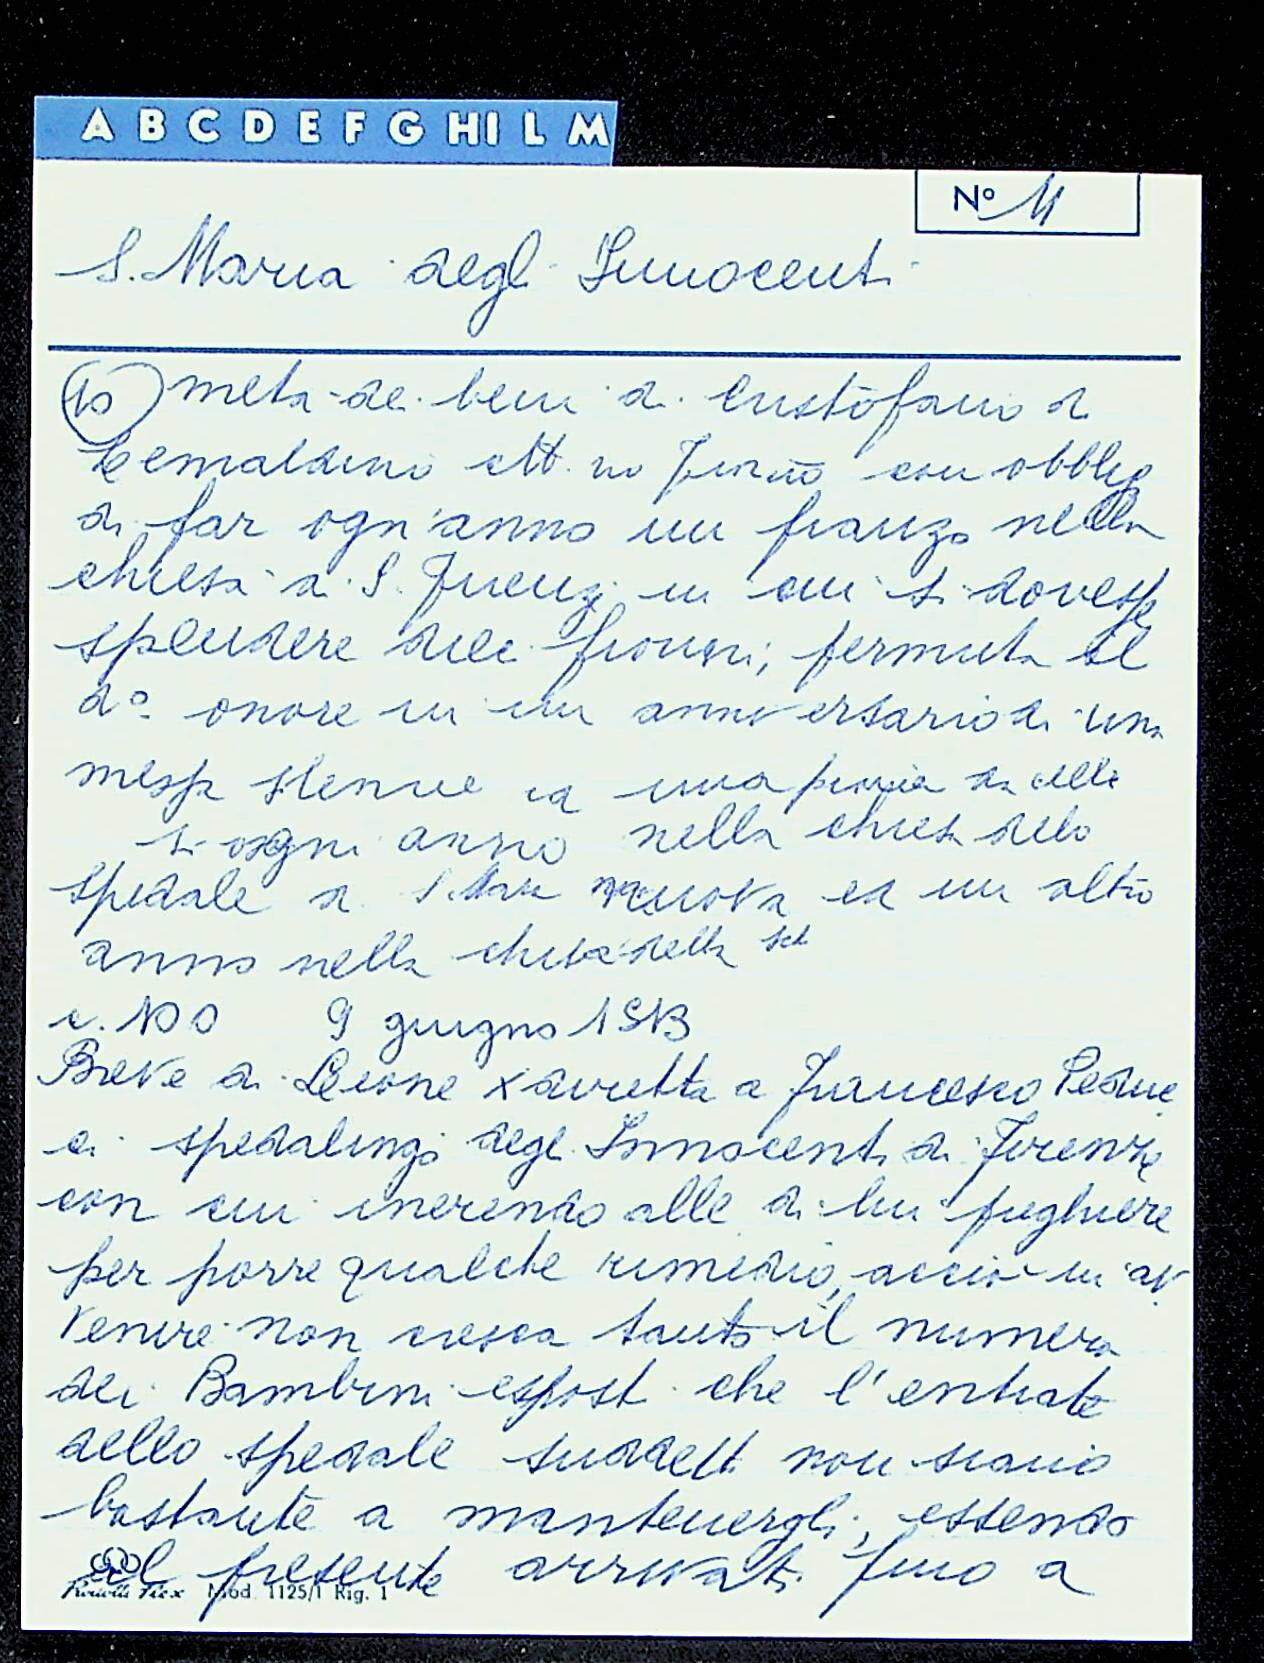 A B C D E F G HI L M
Nº 11
S. Maria degl Innocenti
(10) meta de beni di Cristofano di
citt. no con obbligo
di far ogn'anno un pranzo nella
chiesa di S. in cui si dovesse
spendere dieci fiorini; permuta il
dº onore in un anniversario di una
messa solenne ed una di
ogni anno nella chiesa dello
spedale di S. Maria nuova ed un altro
anno nella chiesa della
c. 100 9 giugno 1513
Breve di Leone X diretta a Francesco
spedalingo degl Innocenti di Firenze
con cui inerendo alle di lui preghiere
per porre qualche rimedio, acciò in av
venire non cresca tanto il numero
dei Bambini esposti che l'entrate
dello spedale suddett. non siano
bastante a mantenergli, essendo
al presente arrivati fino a
Mod. 1125/1 Rig. 1